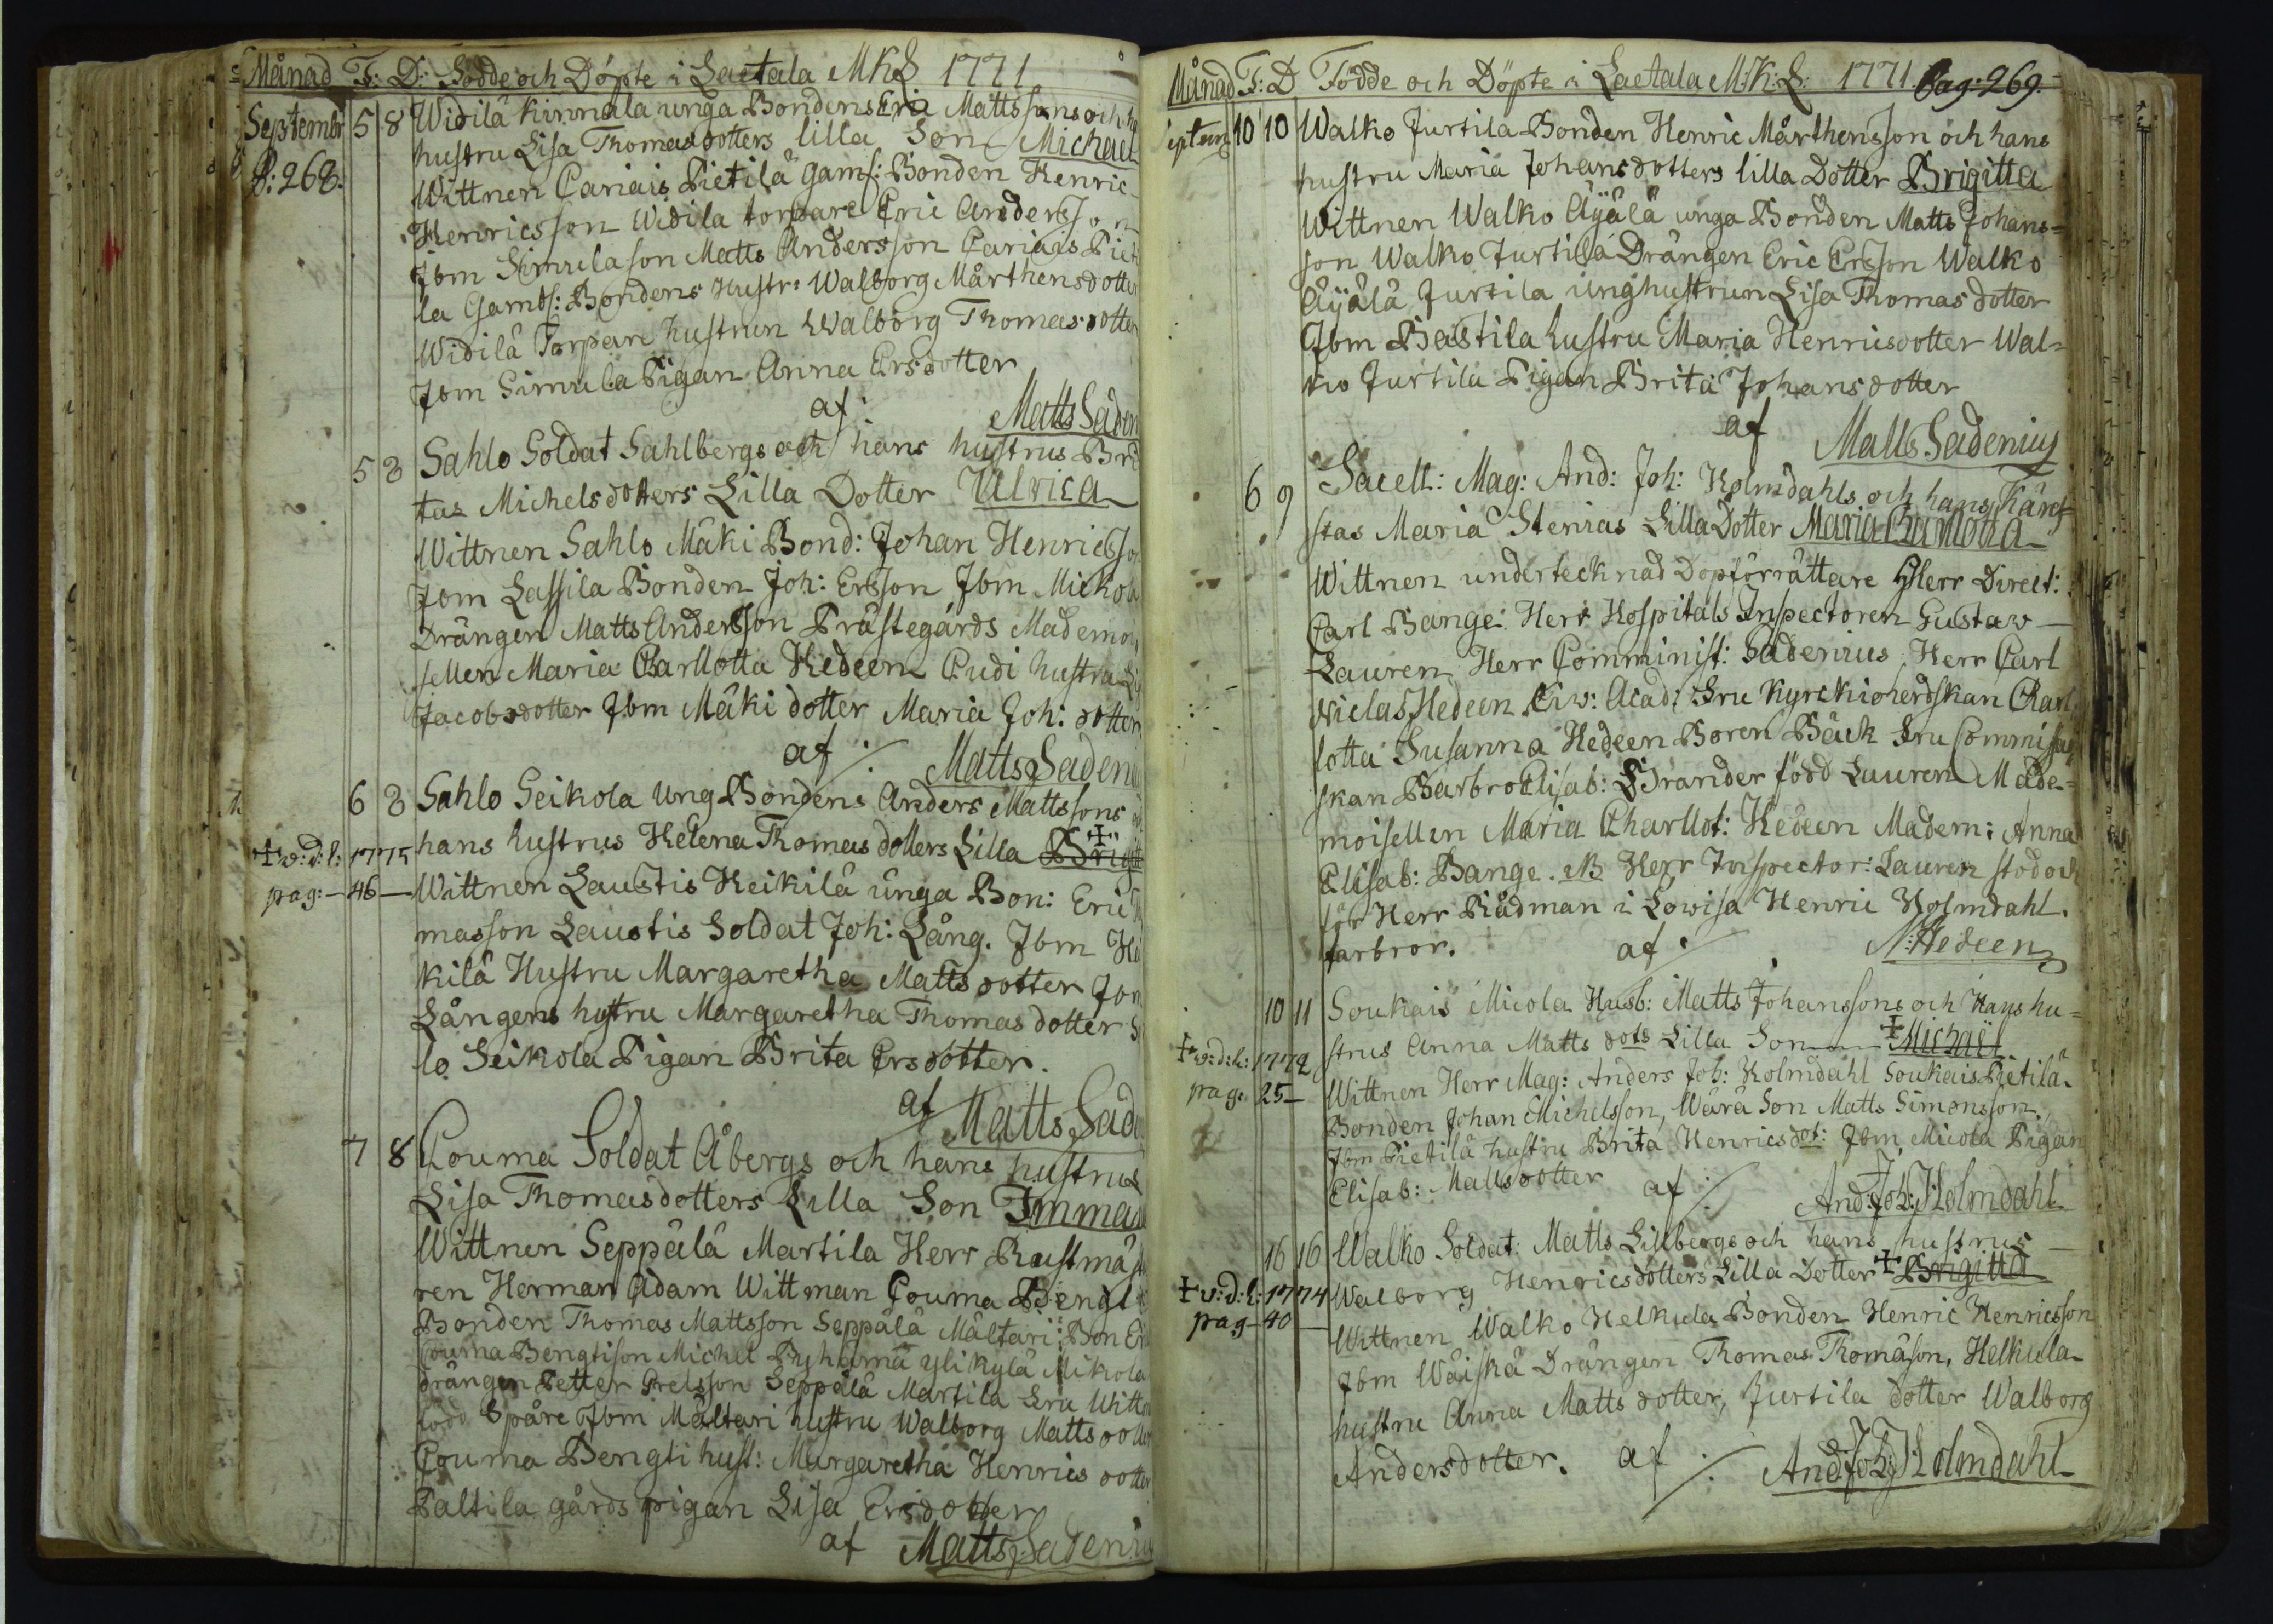 Månad F: D: Födde och Döpte i Laetala MKS 1771
Septembr 5 8 Widilä Kinnala unga Bondens Eric Mattssons och
P: 268. hustru Lisa Thomasdotters lilla Son Michael
Wittnen Cariais Pietilä Gamf: Bonden Henric
Henricsson Widila torpare Eric Andersson
Ibm Simula son Matts Andersson Cariais Piet
la Gamb: Bondens Hustr: Walborg Mårthensdotter
Widilä Torpare hustrun Walborg Thomasdotter
Ibm Simula Pigan Anna Ersdotter
af: Matts Saden
5 8 Sahlo Soldat Sahlbergs och hans hustrus Bri
tas Michelsdotters Lilla Dotter Ulrica
Wittnen Sahlo Mäki Bond: Johan Henricsson
Ibm Lassila Bonden Joh: Ersson Ibm Mickola
Drängen Matts Andersson Prästegårds Mademoi
sellen Maria Charllotta Hedeen Pudi hustru
Jacobsdotter Ibm Mäki dotter Maria Joh: dotter
af: Matts Saden
6 8 Sahlo Seikola Ung Bondens Anders Mattssons
✝ v: d: l: 1775 hans hustrus Helena Thomasdotters Lilla ✝ Brigit
pag: — 46 — Wittnen Laustis Heikilä unga Bon: Eric
masson Laustis Soldat Joh: Lång. Ibm
kilä Hustru Margaretha Mattsdotter Ibm
Långens hustru Margaretha Thomasdotter
lo Seikola Pigan Brita Ersdotter.
af Matts Sad
7 8 Couma Soldat Åbergs och hans hustrus
Lisa Thomasdotters Lilla Son Imma
Wittnen Seppälä Martila Herr Rustmäst
ren Herman Adam Wittman Couma Bengt
Bonden Thomas Mattsson Seppälä Mältari Bon
Couma Bengtison Michel Pyhämä ylikylä Mikola
drängen Petter Grelsson Seppälä Martila Fru Wittm
född Spåre Ibm Mältari hustru Walborg Mattsdotter
Couma Bengti hust: Margaretha Henricsdotter
Paltila gårds pigan Lisa Ersdotter
af Matts Sadenius
Månad F: D Födde och Döpte i Laetala M: K: S: 1771. Pag: 269.
eptem 10 10 Walko Jurtila Bonden Henric Mårthensson och hans
hustru Maria Johansdotters lilla Dotter Brigitta
Wittnen Walko Äyälä unga Bonden Matts Johans=
son Walko Jurtila Drängen Eric Ersson Walko
Äyälä Jurtila unghustrun Lisa Thomasdotter
Ibm Bastila hustru Maria Henricsdotter Wal=
ko Jurtila Pigan Brita Johansdotter
af Matts Sadenius
6 9 Sacell: Mag: And: Joh: Holmdahls och hans Käre
stas Maria Stenias Lilla Dotter Maria Charlotta
Wittnen undertecknad Dopförrättare Herr Direct:
Carl Bange: Herr Hospitals Inspectoren Gustaw —
Lauren Herr Comminist: Sadenius Herr Carl
Niclas Hedeen Civ: Acad: Fru Kyrckioherdskan Charl
lotta Susanna Hedeen Boren Bäck Fru Commissa
skan Barbro Elisab: Brander född Lauren Made=
moisellen Maria Charllot: Hedeen Madem: Anna
Elisab: Bange. NB Herr Inspector: Lauren stod och
för Herr Rådman i Lowisa Henric Holmdahl.
farbror. af: N: Hedeen
10 11 Soukais Micola Husb: Matts Johanssons och Hans hu=
✝ v: d: l: 1772 strus Anna Matts dots Lilla Son ✝ Michaël
pag: 25— Wittnen Herr Mag: Anders Joh: Holmdahl Soukais Pietilä
Bonden Johan Michelsson, Wärä Son Matts Simonsson.
Ibm Pietilä hustru Brita Henricsdot: Ibm Micola Pigan
Elisab: Mattsdotter af: And: Joh: Holmdahl
16 16 Walko Soldat: Matts Lillbergs och hans hustrus —
✝ v: d: l: 1774 Walborg Henricsdotters Lilla Dotter ✝ Brigitta
pag— 40 — Wittnen Walko Helkula Bonden Henric Henricsson
Ibm Wäiskä Drängen Thomas Thomäson, Helkula
hustru Anna Mattsdotter, Jurtila dotter Walborg
Andersdotter. af: And: Joh: Holmdahl